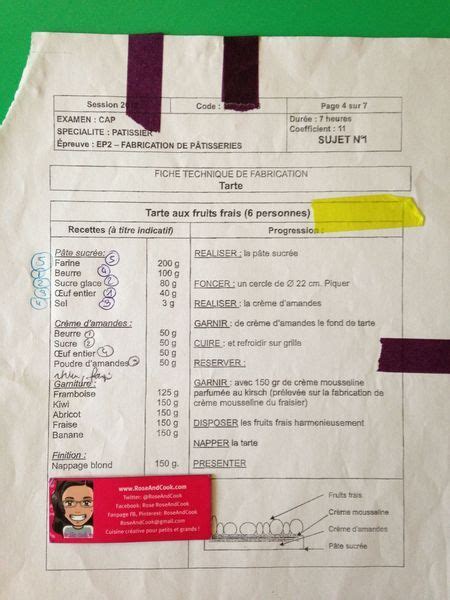 Session 20
Code :
Page 4 sur 7
EXAMEN : CAP
SPECIALITE : PATISSIER
Épreuve : EP2 – FABRICATION DE PÂTISSERIES
Durée : 7 heures
Coefficient : 11
SUJET N°1
FICHE TECHNIQUE DE FABRICATION
Tarte
Tarte aux fruits frais (6 personnes)
Recettes (à titre indicatif)
Progression :
Pâte sucrée :
Farine 5 200 g
Beurre 4 100 g
Sucre glace 2 80 g
Œuf entier 1 40 g
Sel 3 g
Crème d'amandes :
Beurre 1 50 g
Sucre 2 50 g
Œuf entier 4 50 g
Poudre d'amandes 3 50 g
Garniture :
Framboise 125 g
Kiwi 150 g
Abricot 150 g
Fraise 150 g
Banane 150 g
Finition :
Nappage blond 150 g.
REALISER : la pâte sucrée
FONCER : un cercle de Ø 22 cm. Piquer
REALISER : la crème d'amandes
GARNIR : de crème d'amandes le fond de tarte
CUIRE : et refroidir sur grille
RESERVER :
GARNIR : avec 150 gr de crème mousseline
parfumée au kirsch (prélevée sur la fabrication de
crème mousseline du fraisier)
DISPOSER les fruits frais harmonieusement
NAPPER la tarte
PRESENTER
www.RoseAndCook.com
Twitter: @RoseAndCook
Facebook: Rose RoseAndCook
Fanpage FB, Pinterest: RoseAndCook
RoseAndCook@gmail.com
Cuisine créative pour petits et grands !
Fruits frais
Crème mousseline
Crème d'amandes
Pâte sucrée